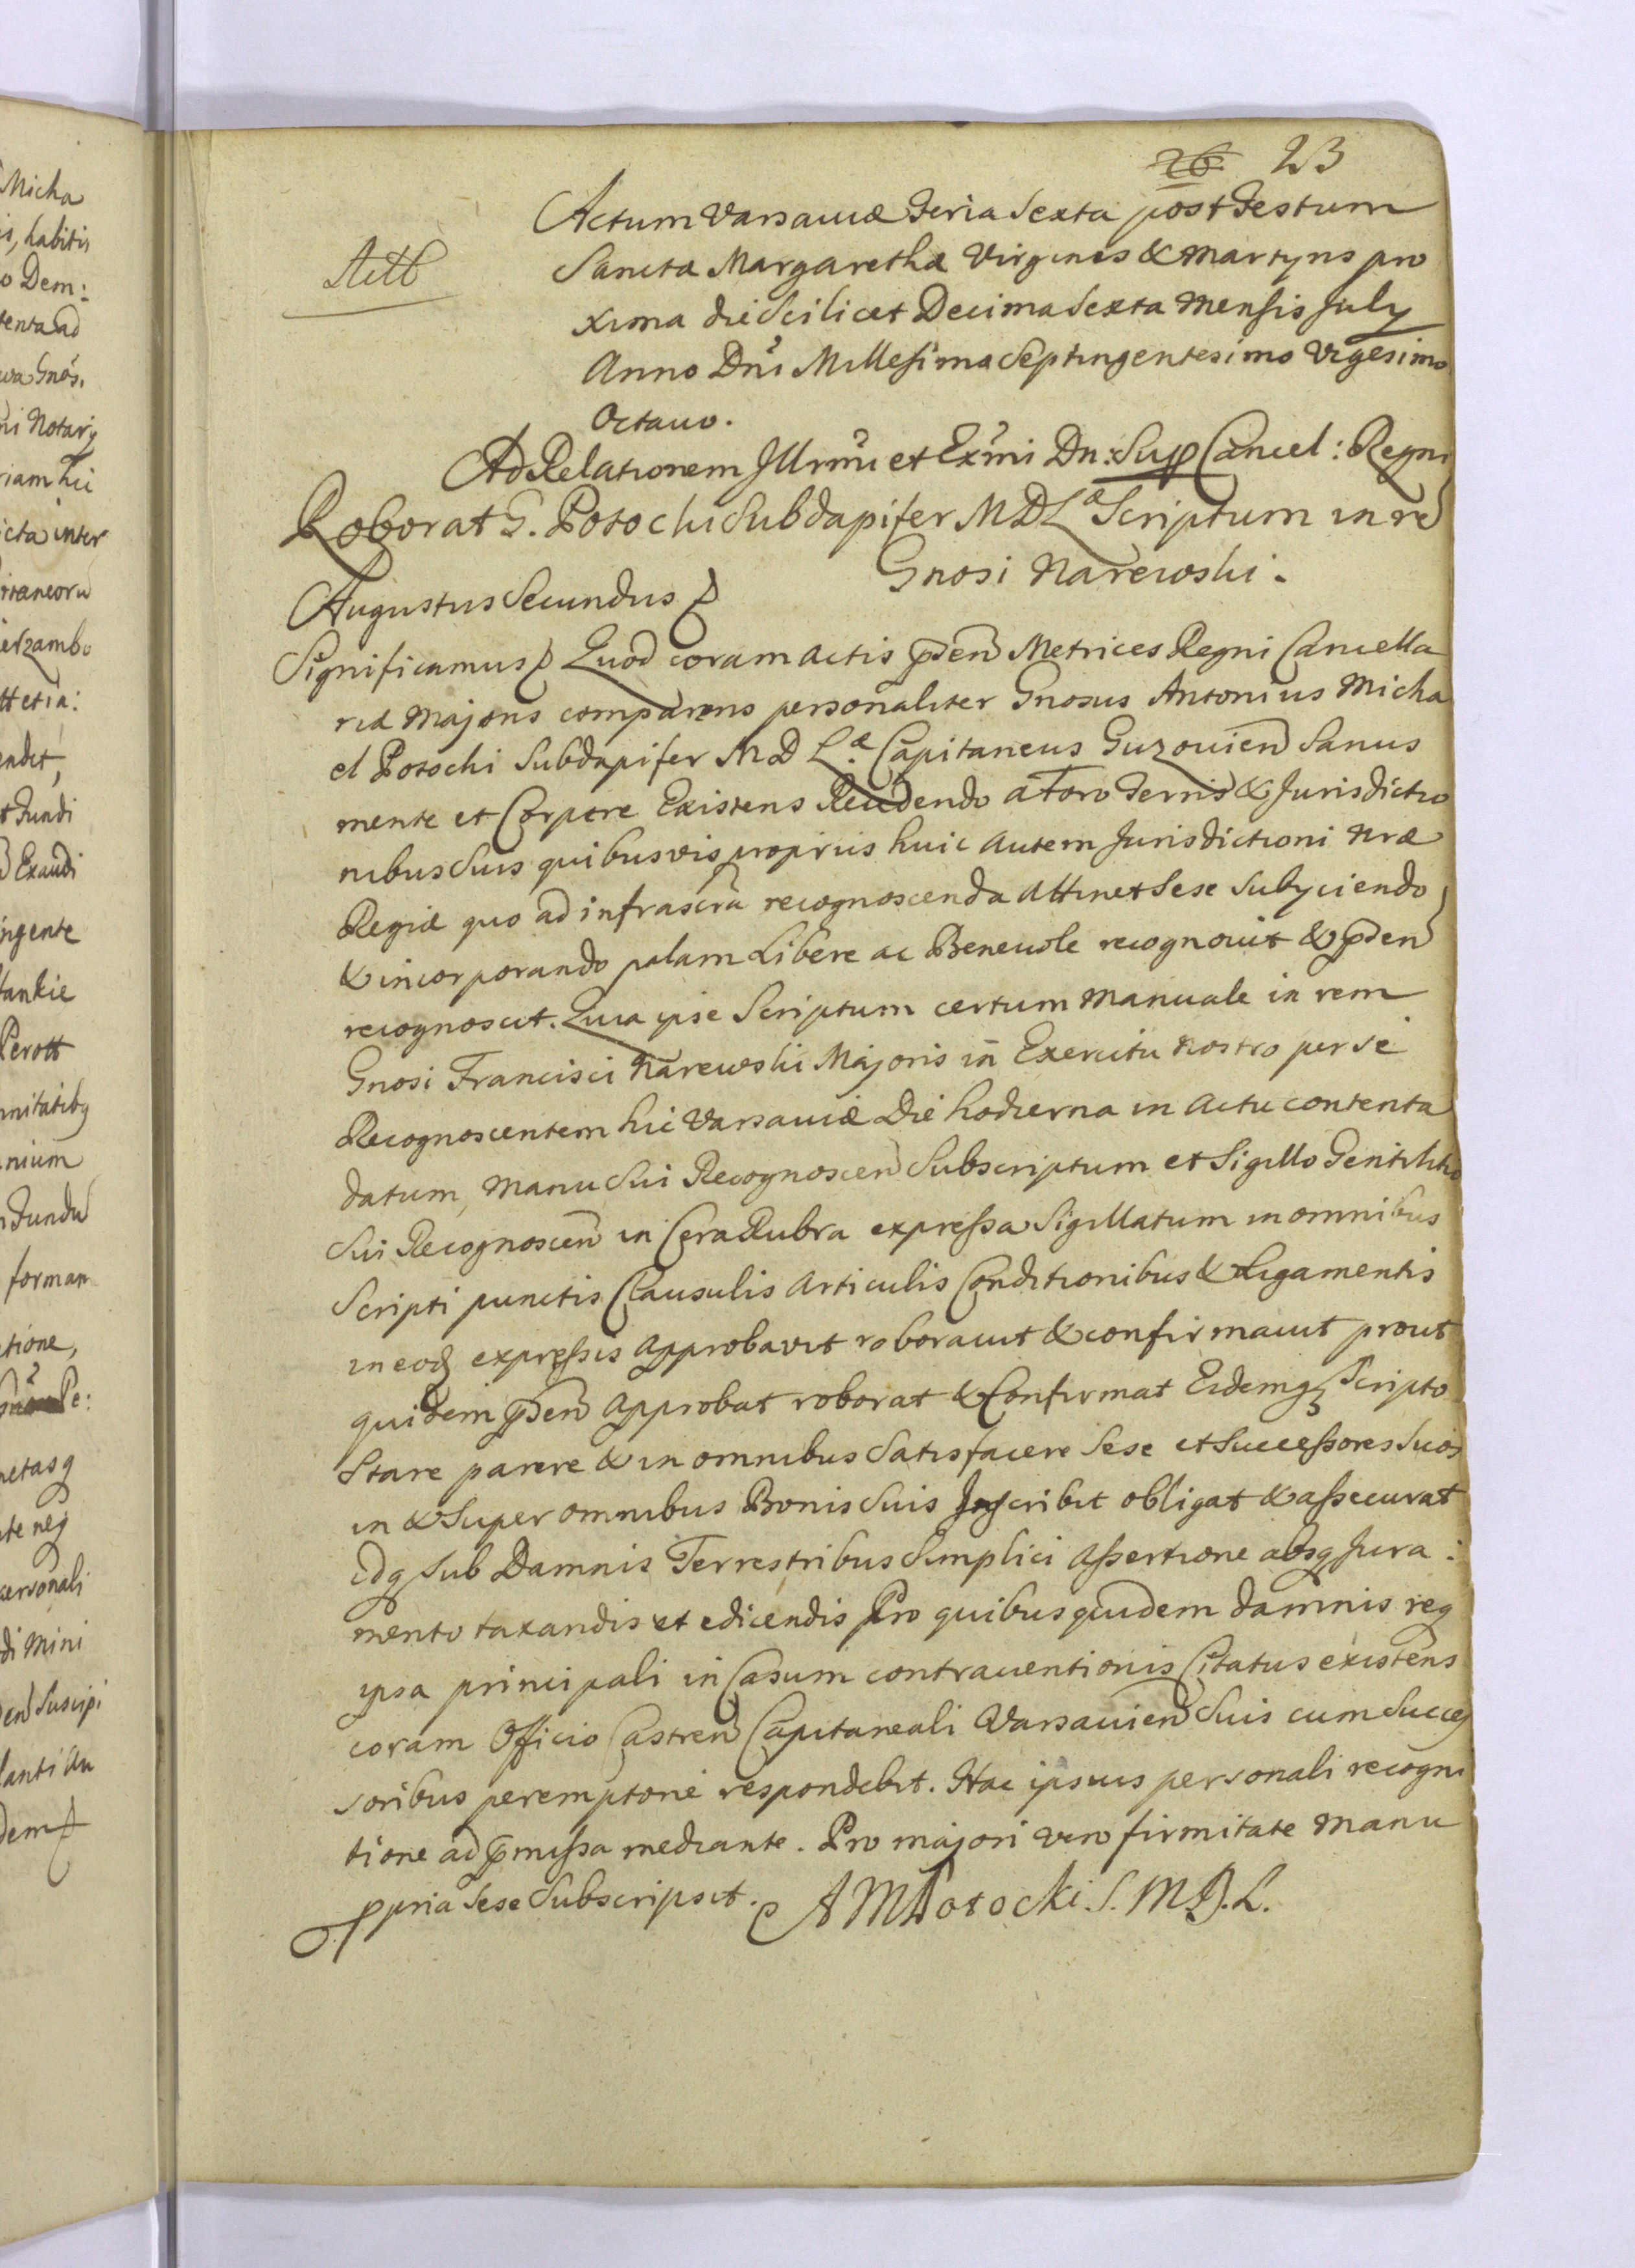 26 23
Actum Varsaviæ Feria Sexta post Festum
Sanctæ Margarethæ Virginis & Martyris pro
xima die Scilicet Decima Sexta Mensis July
Anno Dni Millesimo Septingentesimo Vigesimo
Octavo.
Ad Relationem Illrmi et Exmi Dn: Sup Cancel: Regni
Roborat G. Potocki Subdapifer M D L Scriptum in re
Gnosi Narewski.
Augustus Secundus
Significamus Quod coram Actis pden Metrices Regni Cancella
riæ Majoris comparens personaliter Gnosus Antonius Micha
el Potocki Subdapifer M D L.æ Capitaneus Guzovien Sanus
mente et Corpore Existens Recedendo a Foro Terris & Jurisdictio
nibus Suis quibusvis proprijs huic autem Jurisdictioni nræ
Regiæ quo ad infrascra recognoscenda attinet Sese Subyciendo
& incorporando palam Libere ac Benevole recognovit & pden
recognoscit. Quia ipse Scriptum certum Manuale in rem
Gnosi Francisci Narewski Majoris in Exercitu Nostro per se
Recognoscentem hic Varsaviæ Die hodierna in Actu contenta
datum, Manu Sui Recognoscen Subscriptum et Sigillo Gentilitio
Sui Recognoscen in Cera Rubra expressa Sigillatum in omnibus
Scripti punctis Clausulis Articulis Conditionibus & Ligamentis
in eoq expressis Approbavit roboravit & confirmavit prout
quidem pden Approbat roborat & Confirmat Eidemq Scripto
Stare parere & in omnibus Satisfacere Sese et Successores Suos
in & Super omnibus Bonis Suis Inscribit obligat & assecurat
Idq Sub Damnis Terrestribus Simplici Assertione absq Jura:
mento taxandis et edicendis Pro quibus quidem damnis req
ipsa principali in Casum contraventionis Citatus existens
coram Officio Castren Capitaneali Varsavien Suis cum Succes
soribus peremptorie respondebit. Hac ipsius personali recogni
tione ad pmissa mediante. Pro majori vero firmitate Manu
ppria Sese Subscripsit. A M Potocki. S. M D. L.